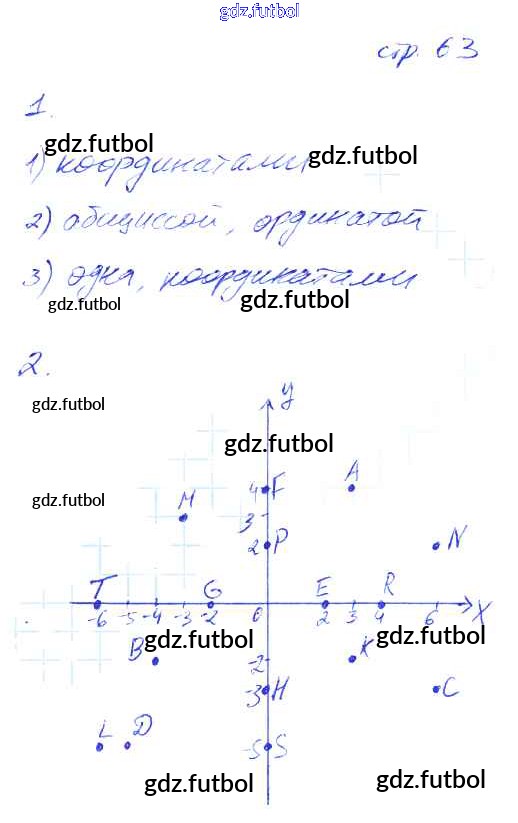 gdz.futbol
стр. 63
1.
gdz.futbol
1) координатами
gdz.futbol
2) абсциссой, ординатой
3) одна, координатами
gdz.futbol
gdz.futbol
2.
gdz.futbol
y
gdz.futbol
A
4 F
M
gdz.futbol
3
2 P
N
T G E R
-6 -5 -4 -3 -2 0 2 3 4 6 X
gdz.futbol
B
gdz.futbol
-2
K
-3 H
C
L D
-5 S
gdz.futbol
gdz.futbol